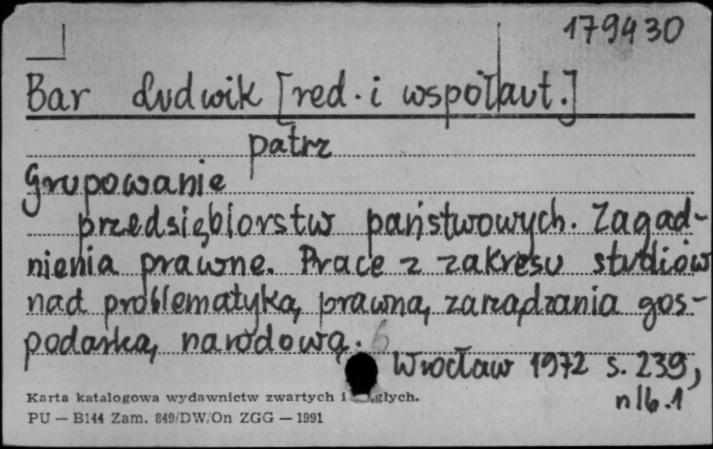 179430
Bar Ludwik [red. i współaut.]
patrz
Grupowanie
przedsiębiorstw państwowych. Zagad-
nienia prawne. Prace z zakresu studiów
nad problematyką prawną zarządzania gos-
podarką narodową. 6
Wrocław 1972 s. 239,
nlb. 1
Karta katalogowa wydawnictw zwartych i głych.
PU — B144 Zam. 849/DW/On ZGG — 1991